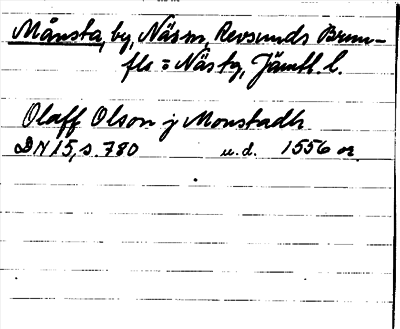 Månsta, by, Näsm, Revsunds Brun-
flo = Näs tg, Jämtl. l.
Olaff Olson j Monstadh
DN 15, s. 780 u.d. 1556 or